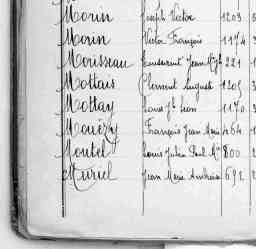 Morin Joseph Victor 1203
Morin Victor François 1174
Morisseau Jean
Mottais Clément Auguste 1205
Mottay Louis Jn Léon 1170
Mouëzy François Jean Marie 464
Moutel Louis Julien Paul Mie 800
Muriel Jean Marie Ambroise 692